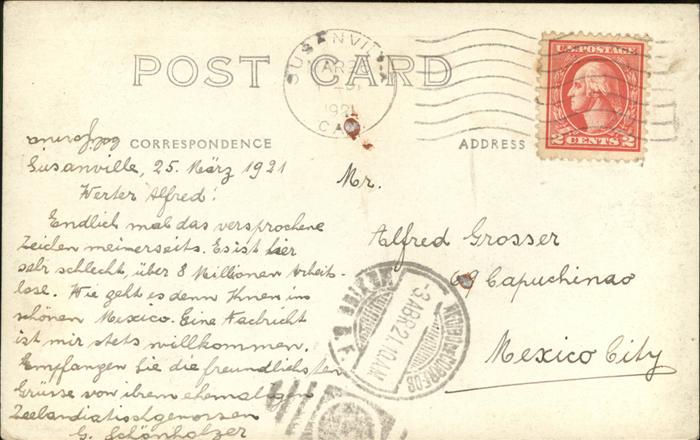 POST CARD
SUSANVILLE
MAR 25
1921
CAL.
U.S. POSTAGE
2 CENTS 2
CORRESPONDENCE
ADDRESS
California
Susanville, 25. März 1921
Werter Alfred!
Endlich mal das versprochene
Zeichen meinerseits. Es ist hier
sehr schlecht, über 8 Millionen Arbeits-
lose. Wie geht es denn Ihnen im
schönen Mexico. Eine Nachricht
ist mir stets willkommen.
Empfangen Sie die freundlichsten
Grüsse von ihrem ehemaligen
Zeelandiatischgenossen
G. Schönholzer
Mr.
Alfred Grosser
69 Capuchinas
Mexico City
3 ABR 21 10 AM